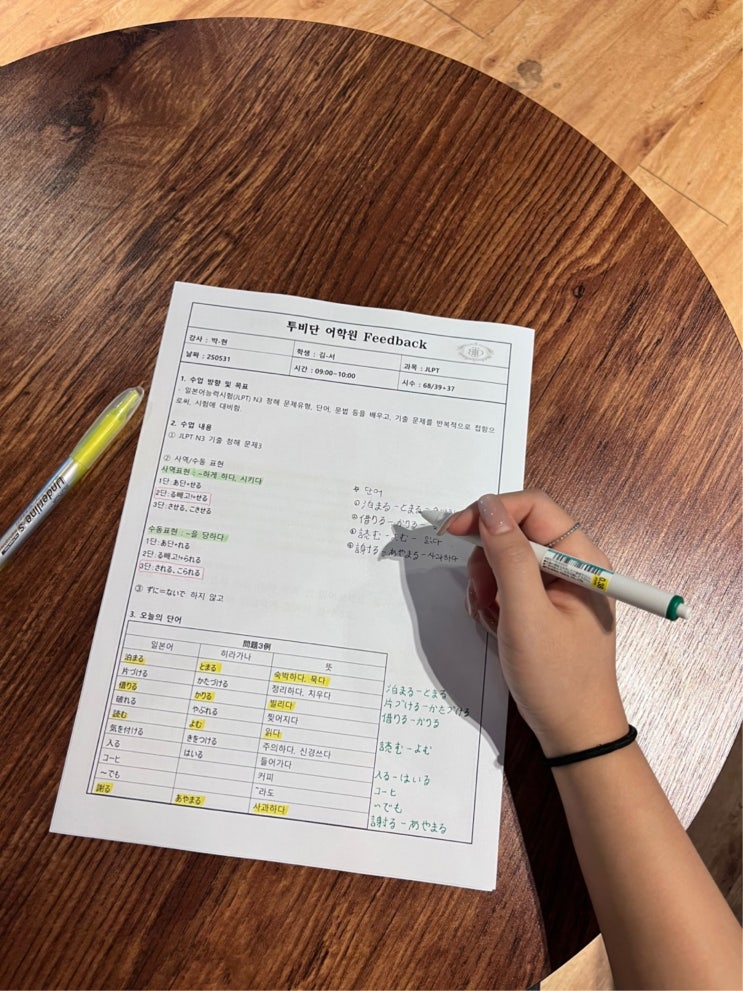 투비단 어학원 Feedback
강사 : 박-현
학생 : 김-서
과목 : JLPT
날짜 : 250531
시간 : 09:00~10:00
시수 : 68/39+37
1. 수업 방향 및 목표
- 일본어능력시험(JLPT) N3 청해 문제유형, 단어, 문법 등을 배우고, 기출 문제를 반복적으로 접함으
로써, 시험에 대비함.
2. 수업 내용
① JLPT N3 기출 청해 문제3
② 사역/수동 표현
사역표현 : ~하게 하다, 시키다
1단: あ단+せる
2단: る빼고!+せる
3단: させる, こさせる
수동표현 : ~을 당하다
1단: あ단+れる
2단: る빼고!+られる
3단: される、こられる
③ ずに=ないで 하지 않고
단어
① 泊まる - とまる
② 借りる - かりる
③ 読む - よむ - 읽다
④ 謝る - あやまる - 사과하다
3. 오늘의 단어
問題3例
일본어 히라가나 뜻
泊まる とまる 숙박하다, 묵다
片づける かたづける 정리하다, 치우다
借りる かりる 빌리다
破れる やぶれる 찢어지다
読む よむ 읽다
気を付ける きをつける 주의하다, 신경쓰다
入る はいる 들어가다
コーヒ 커피
~でも ~라도
謝る あやまる 사과하다
泊まる - とまる
片づける - かたづける
借りる - かりる
読む - よむ
入る - はいる
コーヒ
~でも
謝る - あやまる
Underline S